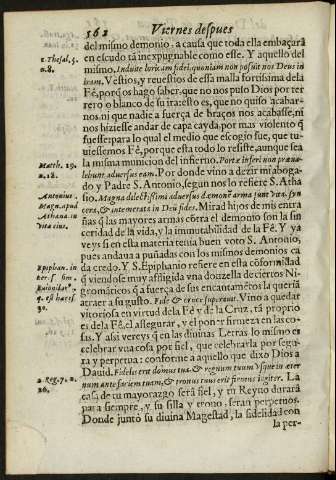 562
Viernes despues
del mismo demonio. a causa que toda ella embaçara
en escudo tã inexpugnable como esse. Y aquello del
1. Thesal. 5.
n.8.
mismo. Induite loricam fidei, quoniam non posuit nos Deus in
iram. Vestios, y reuestios de essa malla fortissima dela
Fè, porq̃ os hago saber, que no nos puso Dios por ter
rero o blanco de su ira: esto es, que no quiso acabar-
nos, ni que nadie a fuerça de braços nos acabasse, ni
nos hiziesse andar de capa cayda, por mas violento q̃
fuesse: para lo qual el medio que escogio fue, que tu-
uiessemos Fè, porque esta todo lo resiste, aunque sea
Matth. 19.
n.18.
la misma municion del infierno. Portæ inferi non præua-
lebunt aduersus eam. Por donde vino a dezir mi aboga-
do y Padre S. Antonio, segun nos lo refiere S. Atha
Antonius.
Magn. apud
Athana. in
vita eius.
sio. Magna dilectissimi aduersus dæmones arma sunt vita syn
cera, & intemerata in Deũ fides. Mirad hijos de mis entra
ñas q̃ las mayores armas cõtra el demonio son la sin
ceridad de la vida, y la immutabilidad de la Fè. Y ya
veys si en esta materia tenia buen voto S. Antonio,
pues andaua a puñadas con los mismos demonios ca
Epiphan. in
da credo. Y S. Epiphanio refiere en ella cõformidad
q̃ viendose muy affligida vna dozella de ciertos Ni-
gromãticos q̃ a fuerça de sus encantamẽtos la queriã
30.
atraer a su gusto. Fide & cruce superauit. Vino a quedar
vitoriosa en virtud dela Fè y de la Cruz, tã proprio
es dela Fè, el assegurar, y el poner firmeza en las co-
sas. Y assi vereys q̃ en las diuinas Letras lo mismo es
celebrar vna cosa por fiel, que celebrarla por segu-
ra y perpetua: conforme a aquello que dixo Dios a
2. Reg. 7. n.
16.
Dauid. Fidelis erit domus tua, & regnum tuum vsque in æter
num ante faciem tuam, & tronus tuus erit firmus iugiter. La
casa de tu mayorazgo serà fiel, y tu Reyno durarà
para siempre, y su silla y trono, seran perpetuos.
Donde juntò su diuina Magestad, la fidelidad con
la per-